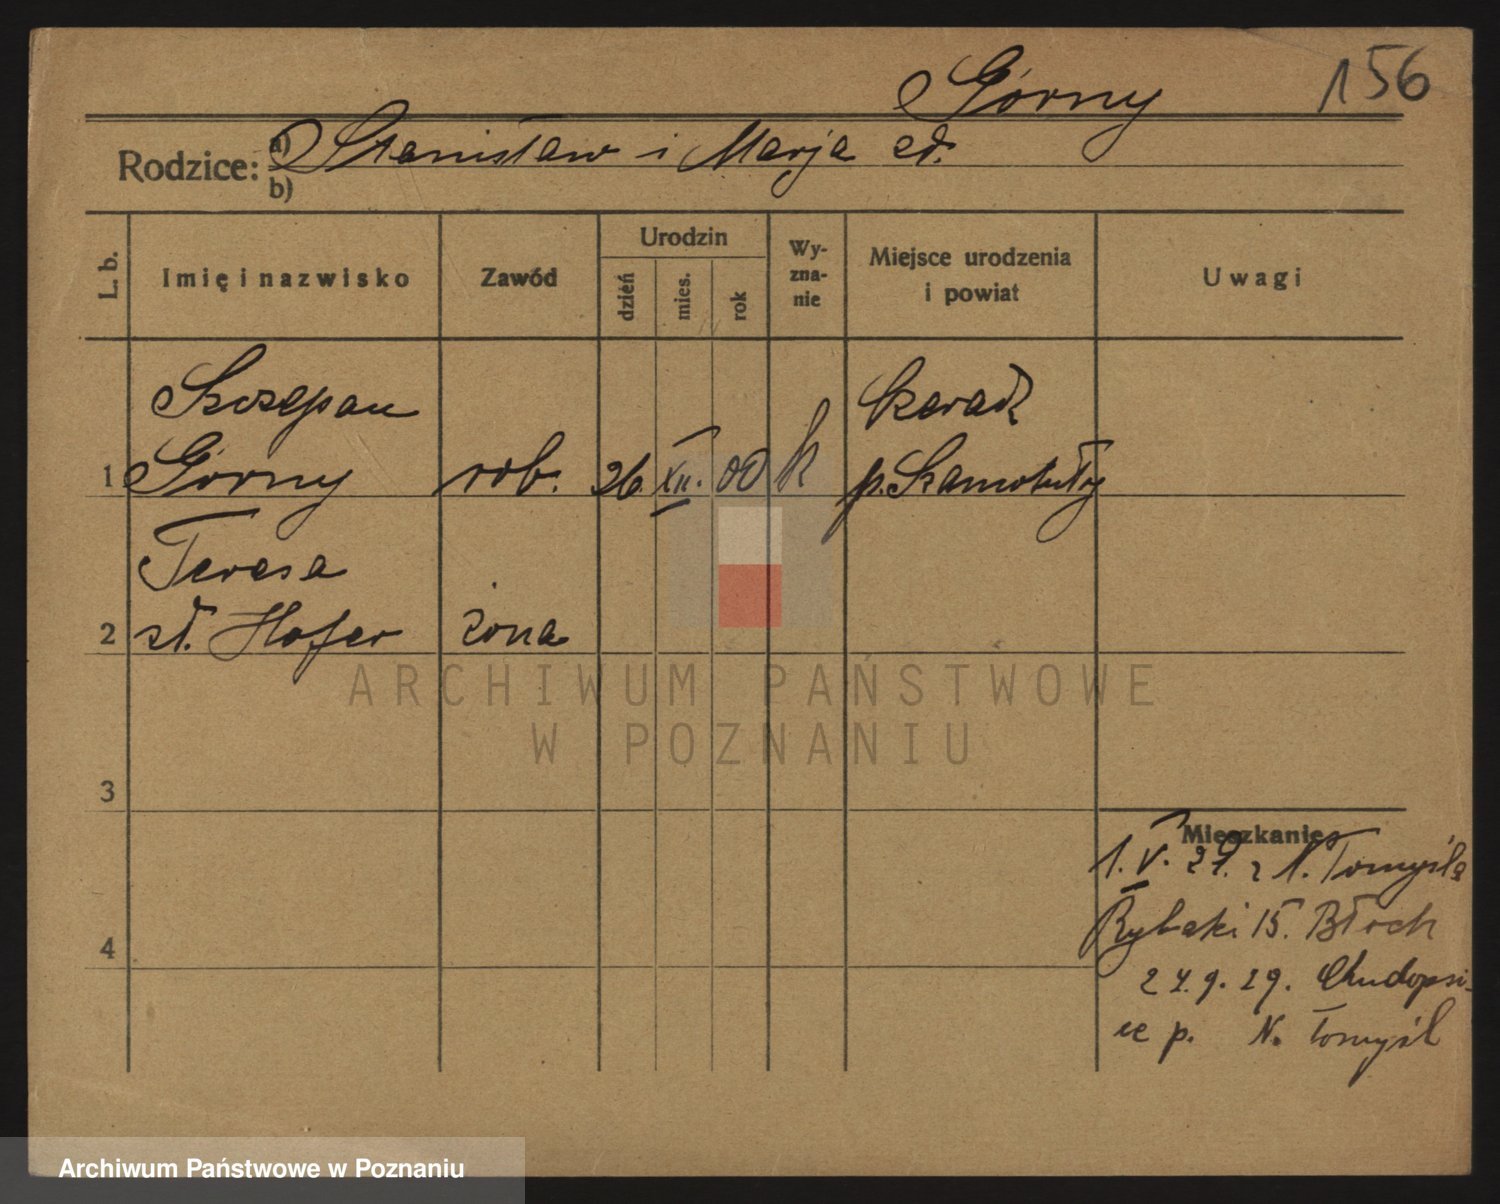 Górny 156
Rodzice: a) Stanisław i Marja
b)
L. b. Imię i nazwisko Zawód Urodzin dzień mies. rok Wy-zna-nie Miejsce urodzenia i powiat Uwagi
Szczepan
1 Górny rob. 26. XII. 00 k p. Szamotuły
Teresa
2 Hofer żona
ARCHIWUM PAŃSTWOWE
W POZNANIU
3
Mieszkanie
1. V. 27. z N. Tomyśla
4 Rybaki 15. Błoch
24. 9. 29. Chudopsi-
ce p. N. Tomyśl
Archiwum Państwowe w Poznaniu